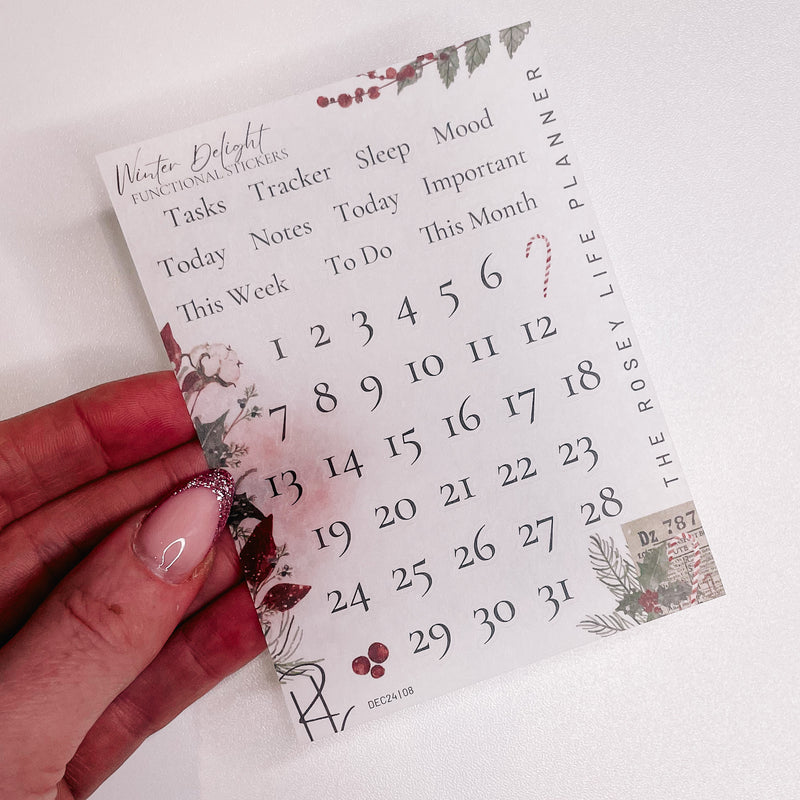 Winter Delight
FUNCTIONAL STICKERS
Tasks Tracker Sleep Mood
Today Notes Today Important
This Week To Do This Month
1 2 3 4 5 6
7 8 9 10 11 12
13 14 15 16 17 18
19 20 21 22 23
24 25 26 27 28
29 30 31
DEC24|08
THE ROSEY LIFE PLANNER
Dz 787